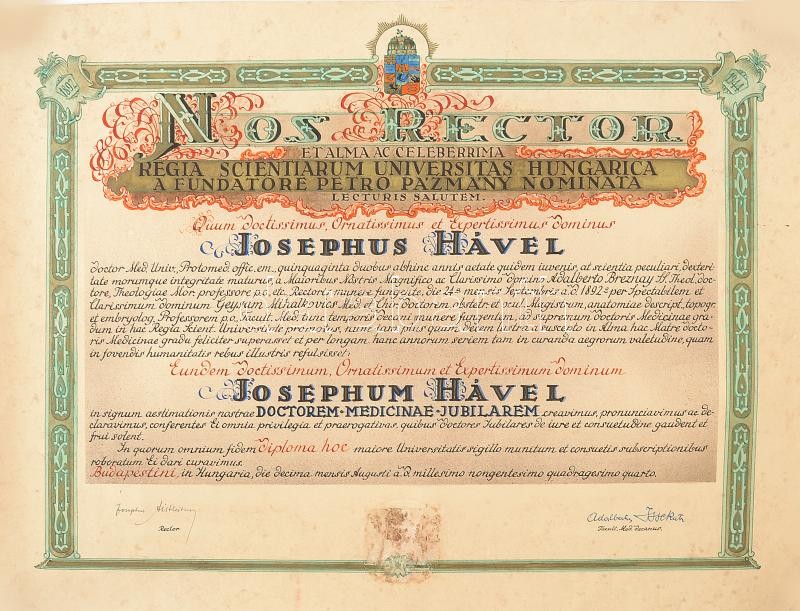 1892
1944
NOS RECTOR
ET ALMA AC CELEBERRIMA
REGIA SCIENTIARUM UNIVERSITAS HUNGARICA
A FUNDATORE PETRO PÁZMÁNY NOMINATA
LECTURIS SALUTEM.
Quum Doctissimus, Ornatissimus et Expertissimus Dominus
JOSEPHUS HÁVEL
Doctor Med. Univ., Protomed. offic. em., quinquaginta duobus abhinc annis aetate quidem iuvenis, at scientia peculiari, dexteri-
tate morumque integritate maturus, a Maioribus Nostris Magnifico ac Clarissimo Domino Adalberto Breznay S. Theol. doc-
tore, Theologiae Mor. professore p.o. etc. Rectoris munere fungente, die 24a mensis Septembris a. D. 1892o per Spectabilem et
Clarissimum Dominum Geysam Mihalkovics Med. et Chir. doctorem, obstetr. et ocul. Magistrum, anatomiae descript., topogr.
et embryolog. Professorem p.o. Facult. Med. tunc temporis Decani munere fungentem, ad supremum doctoris Medicinae gra-
dum in hac Regia Scient. Universitate promotus, nunc iam plus quam decem lustra a suscepto in Alma hac Matre docto-
ris Medicinae gradu feliciter superasset et per longam hanc annorum seriem tam in curanda aegrorum valetudine, quam
in fovendis humanitatis rebus illustris refulsisset:
Eundem Doctissimum, Ornatissimum et Expertissimum Dominum
JOSEPHUM HÁVEL
in signum aestimationis nostrae DOCTOREM MEDICINAE JUBILAREM creavimus, pronunciavimus ac de-
claravimus, conferentes Ei omnia privilegia et praerogativas, quibus doctores Iubilares de iure et consuetudine gaudent et
frui solent.
In quorum omnium fidem Diploma hoc maiore Universitatis sigillo munitum et consuetis subscriptionibus
roboratum Ei dari curavimus.
Budapestini, in Hungaria, die decima mensis Augusti a. D. millesimo nongentesimo quadragesimo quarto.
Josephus
Rector
Adalbertus
Facult. Med. Decanus.